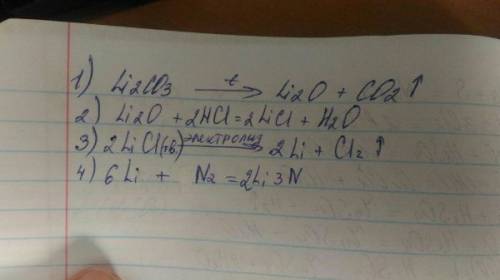 1) Li2CO3 —t→ Li2O + CO2↑
2) Li2O + 2HCl = 2LiCl + H2O
3) 2LiCl(тв) —электролиз→ 2Li + Cl2↑
4) 6Li + N2 = 2Li3N